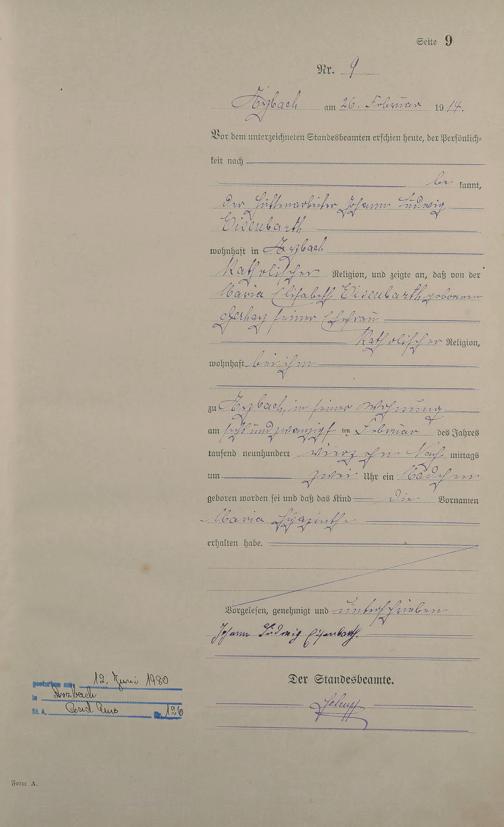 Seite 9
Nr. 9
Arzbach am 26. Februar 1914.
Vor dem unterzeichneten Standesbeamten erschien heute, der Persönlich-
keit nach
be kannt,
der Hüttenarbeiter Johann Ludwig
Eisenbarth
wohnhaft in Arzbach
Katholischer Religion, und zeigte an, daß von der
Maria Elisabeth Eisenbarth geborene
seiner Ehefrau
Katholischer Religion,
wohnhaft bei ihm
zu Arzbach, in seiner Wohnung
am sechsundzwanzigsten Februar des Jahres
tausend neunhundert vierzehn Nach mittags
um zwei Uhr ein Mädchen
geboren worden sei und daß das Kind die Vornamen
Maria
erhalten habe.
Vorgelesen, genehmigt und unterschrieben
Johann Ludwig Eisenbarth
Der Standesbeamte.
gestorben am 12. Juni 1980
in Arzbach
St. A. Bad Ems Nr. 126
Form A.